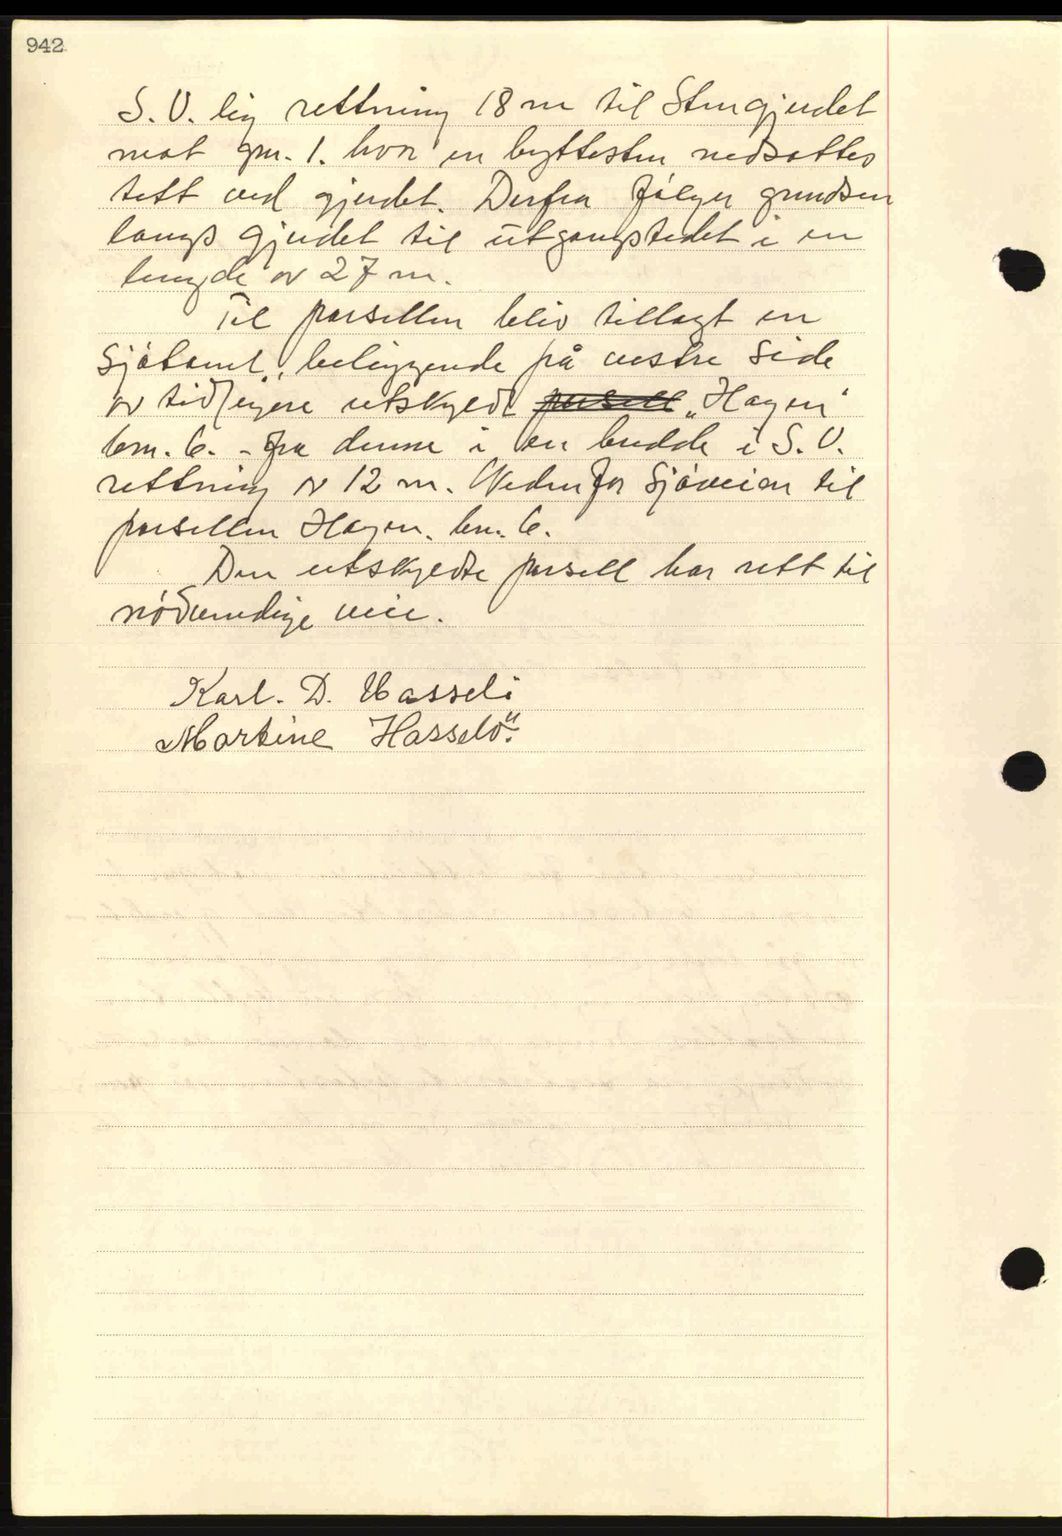 942
S. V. lig rettning 18 m til Stengjerdet
mot gm. 1. hvor en byttesten nedsattes
tett ved gjerdet. Derfra følger grundsen
langs gjerdet til utgangstedet i en
lengde av 27 m.
Til parsellen blev tillagt en
Sjøtomt, beliggende på vestre Side
av tidligere utskyldt parsell „Hagen"
bm. 6. - fra denne i en bredde i S. V.
rettning av 12 m. Nedenfor Sjøveien til
parsellen Hagen. bm. 6.
Den utskyldte parsell har rett til
nødvendige veie.
Karl. D. Hasselø
Martine Hasselø.